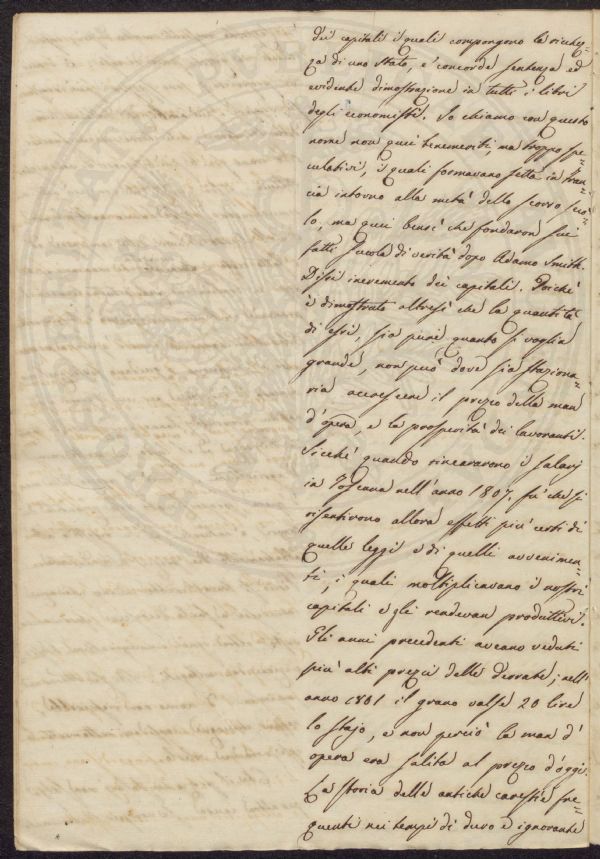 dei capitali i quali compongono la ricchez=
za di uno Stato, e' concorde sentenza ed
evidente dimostrazione in tutti i libri
degli economisti. Io chiamo con questo
nome non quei benemeriti, ma troppo spe=
culativi, i quali formavano setta in Fran=
cia intorno alla metà dello scorso seco=
lo, ma quei bensì che fondaron sui
fatti scuola di verità dopo Adamo Smith.
Dissi incremento dei capitali. Poiché
è dimostrato altresì che la quantità
di essi, sia pure quanto si voglia
grande, non può dove sia staziona=
ria accrescere il prezzo della man
d'opera, e la prosperità dei lavoranti.
Sicché quando rincararono i salarj
in Toscana nell'anno 1807. fu che si
risentirono allora effetti più certi di
quelle leggi e di quelli avvenimen=
ti, i quali moltiplicavano i nostri
capitali e gli rendevan produttivi.
Gli anni precedenti aveano veduti
più alti prezzi delle derrate; nell'
anno 1801 il grano valse 20 lire
lo stajo, e non perciò la man d'
opera era salita al prezzo d'oggi.
La storia delle antiche carestie fre=
quenti nei tempi di duro e ignorante